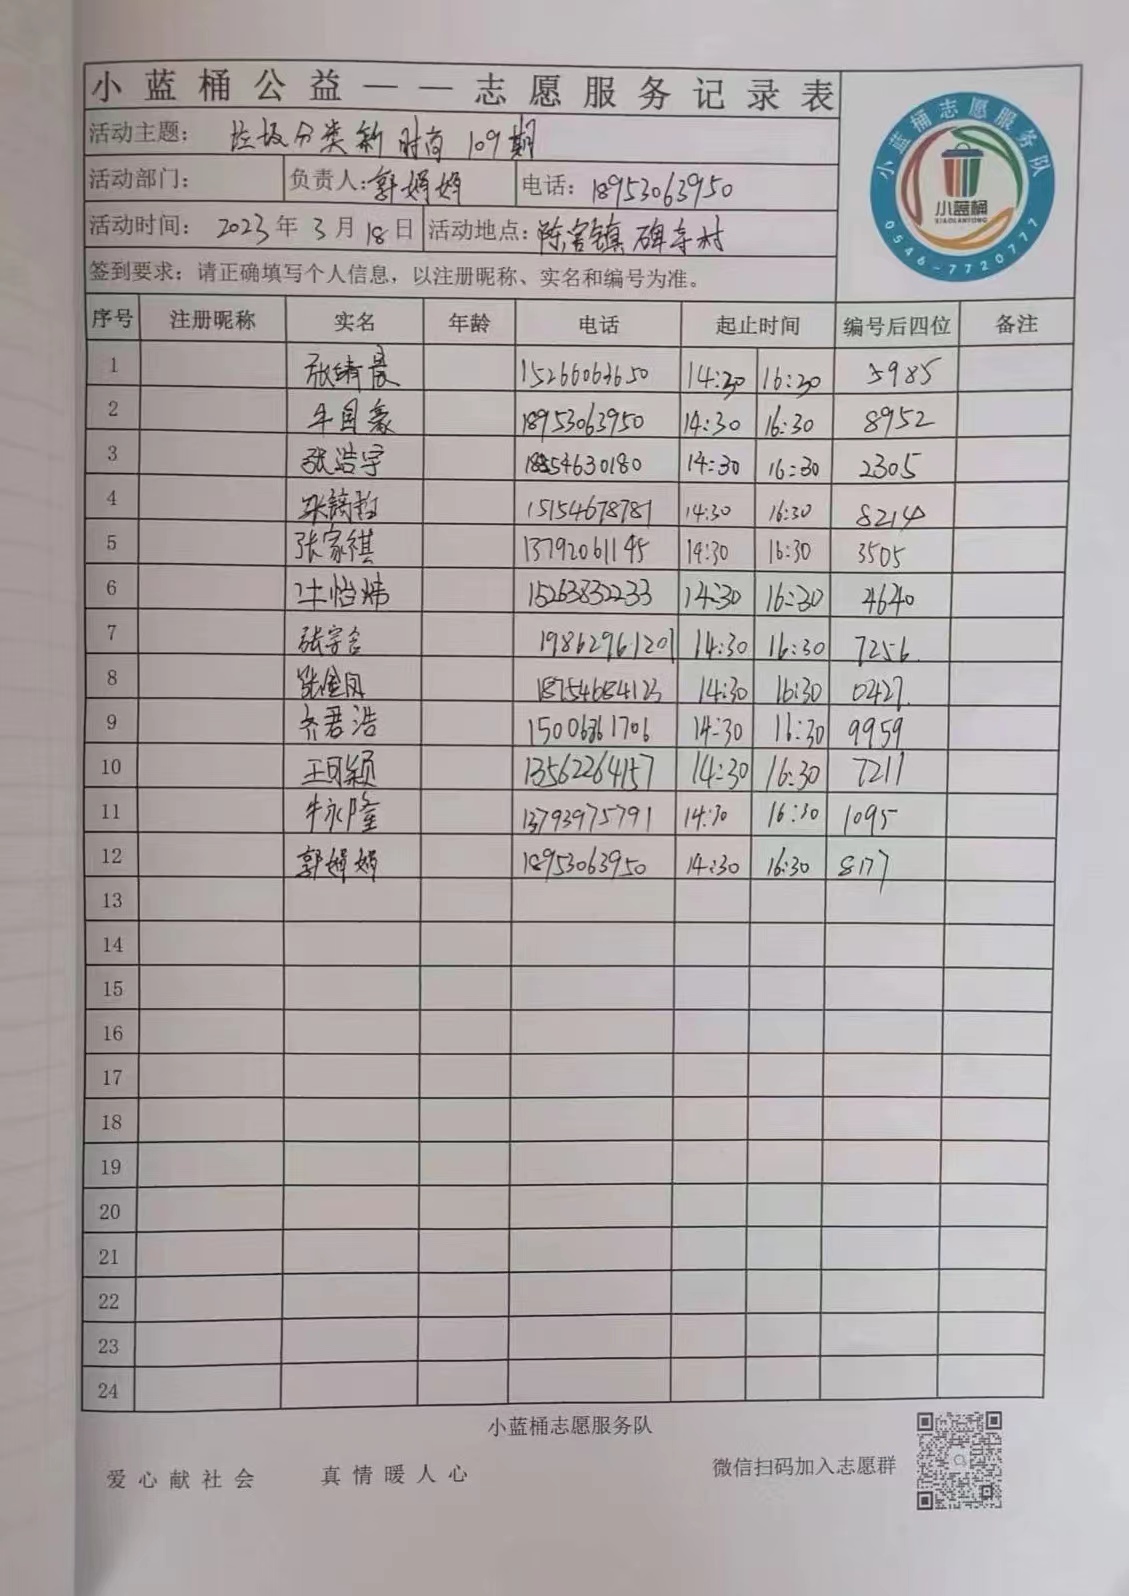 小蓝桶公益——志愿服务记录表
活动主题： 垃圾分类新时尚 109期
活动部门： 负责人：郭娟娟 电话：18953063950
活动时间： 2023年3月18日 活动地点：陈官镇 碑寺村
签到要求：请正确填写个人信息，以注册昵称、实名和编号为准。
小蓝桶志愿服务队
小蓝桶
XIAOLANTONG
0546-7720777
序号 注册昵称 实名 年龄 电话 起止时间 编号后四位 备注
1 张靖晨 15266063650 14:30 16:30 5985
2 牛国豪 18953063950 14:30 16:30 8952
3 张浩宇 18554630180 14:30 16:30 2305
4 15154678781 14:30 16:30 8214
5 张家祺 13792061145 14:30 16:30 3505
6 怡炜 15263832233 14:30 16:30 4640
7 张宇 19862961201 14:30 16:30 7256
8 张金凤 18754684123 14:30 16:30 0427
9 齐君浩 15006361706 14:30 16:30 9959
10 王可颖 13562264157 14:30 16:30 7211
11 牛永隆 13793975791 14:30 16:30 1095
12 郭娟娟 18953063950 14:30 16:30 8177
13
14
15
16
17
18
19
20
21
22
23
24
小蓝桶志愿服务队
爱心献社会 真情暖人心 微信扫码加入志愿群